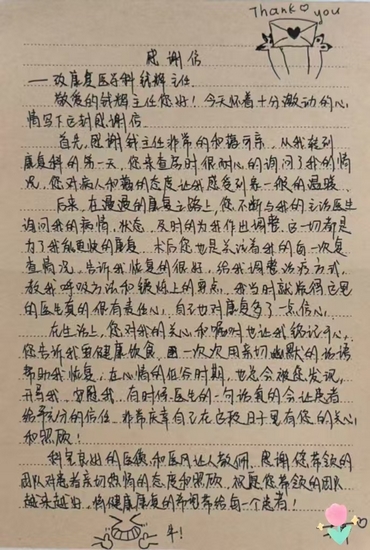 Thank you
感谢信
——致康复医学科钱辉主任
敬爱的钱辉主任您好！今天怀着十分激动的心
情写下这封感谢信。
首先，感谢钱主任非常的和蔼可亲，从我转到
康复科的第一天，您来查房时很耐心的询问了我的情
况，您对病人和蔼的态度让我感受到春一般的温暖。
后来，在漫漫的康复之路上，您不断与我的主治医生
询问我的病情、状态，及时的为我作出调整，这一切都是
为了我能更快的康复。术后您也是关注着我的每一次复
查情况，告诉我恢复的很好，给我调整治疗方式，
教我呼吸方法和锻炼上的要点，我当时就觉得这里
的医生真的很有责任心，自己也对康复多了一点信心。
在生活上，您对我的关心和嘱咐也让我铭记于心。
您告诉我要健康饮食，一次次用亲切幽默的话语
帮助我恢复；在心情的低谷时期，也总会被您发现，
开导我、安慰我，有时候医生的一句话真的会让患者
给予充分的信任，非常庆幸自己在这段日子里有您的关心
和照顾！
科室良好的医德和医风让人敬佩，感谢您带领的
团队对患者亲切热情的态度和照顾，祝愿您带领的团队
越来越好，将健康康复的希望带给每一个患者！